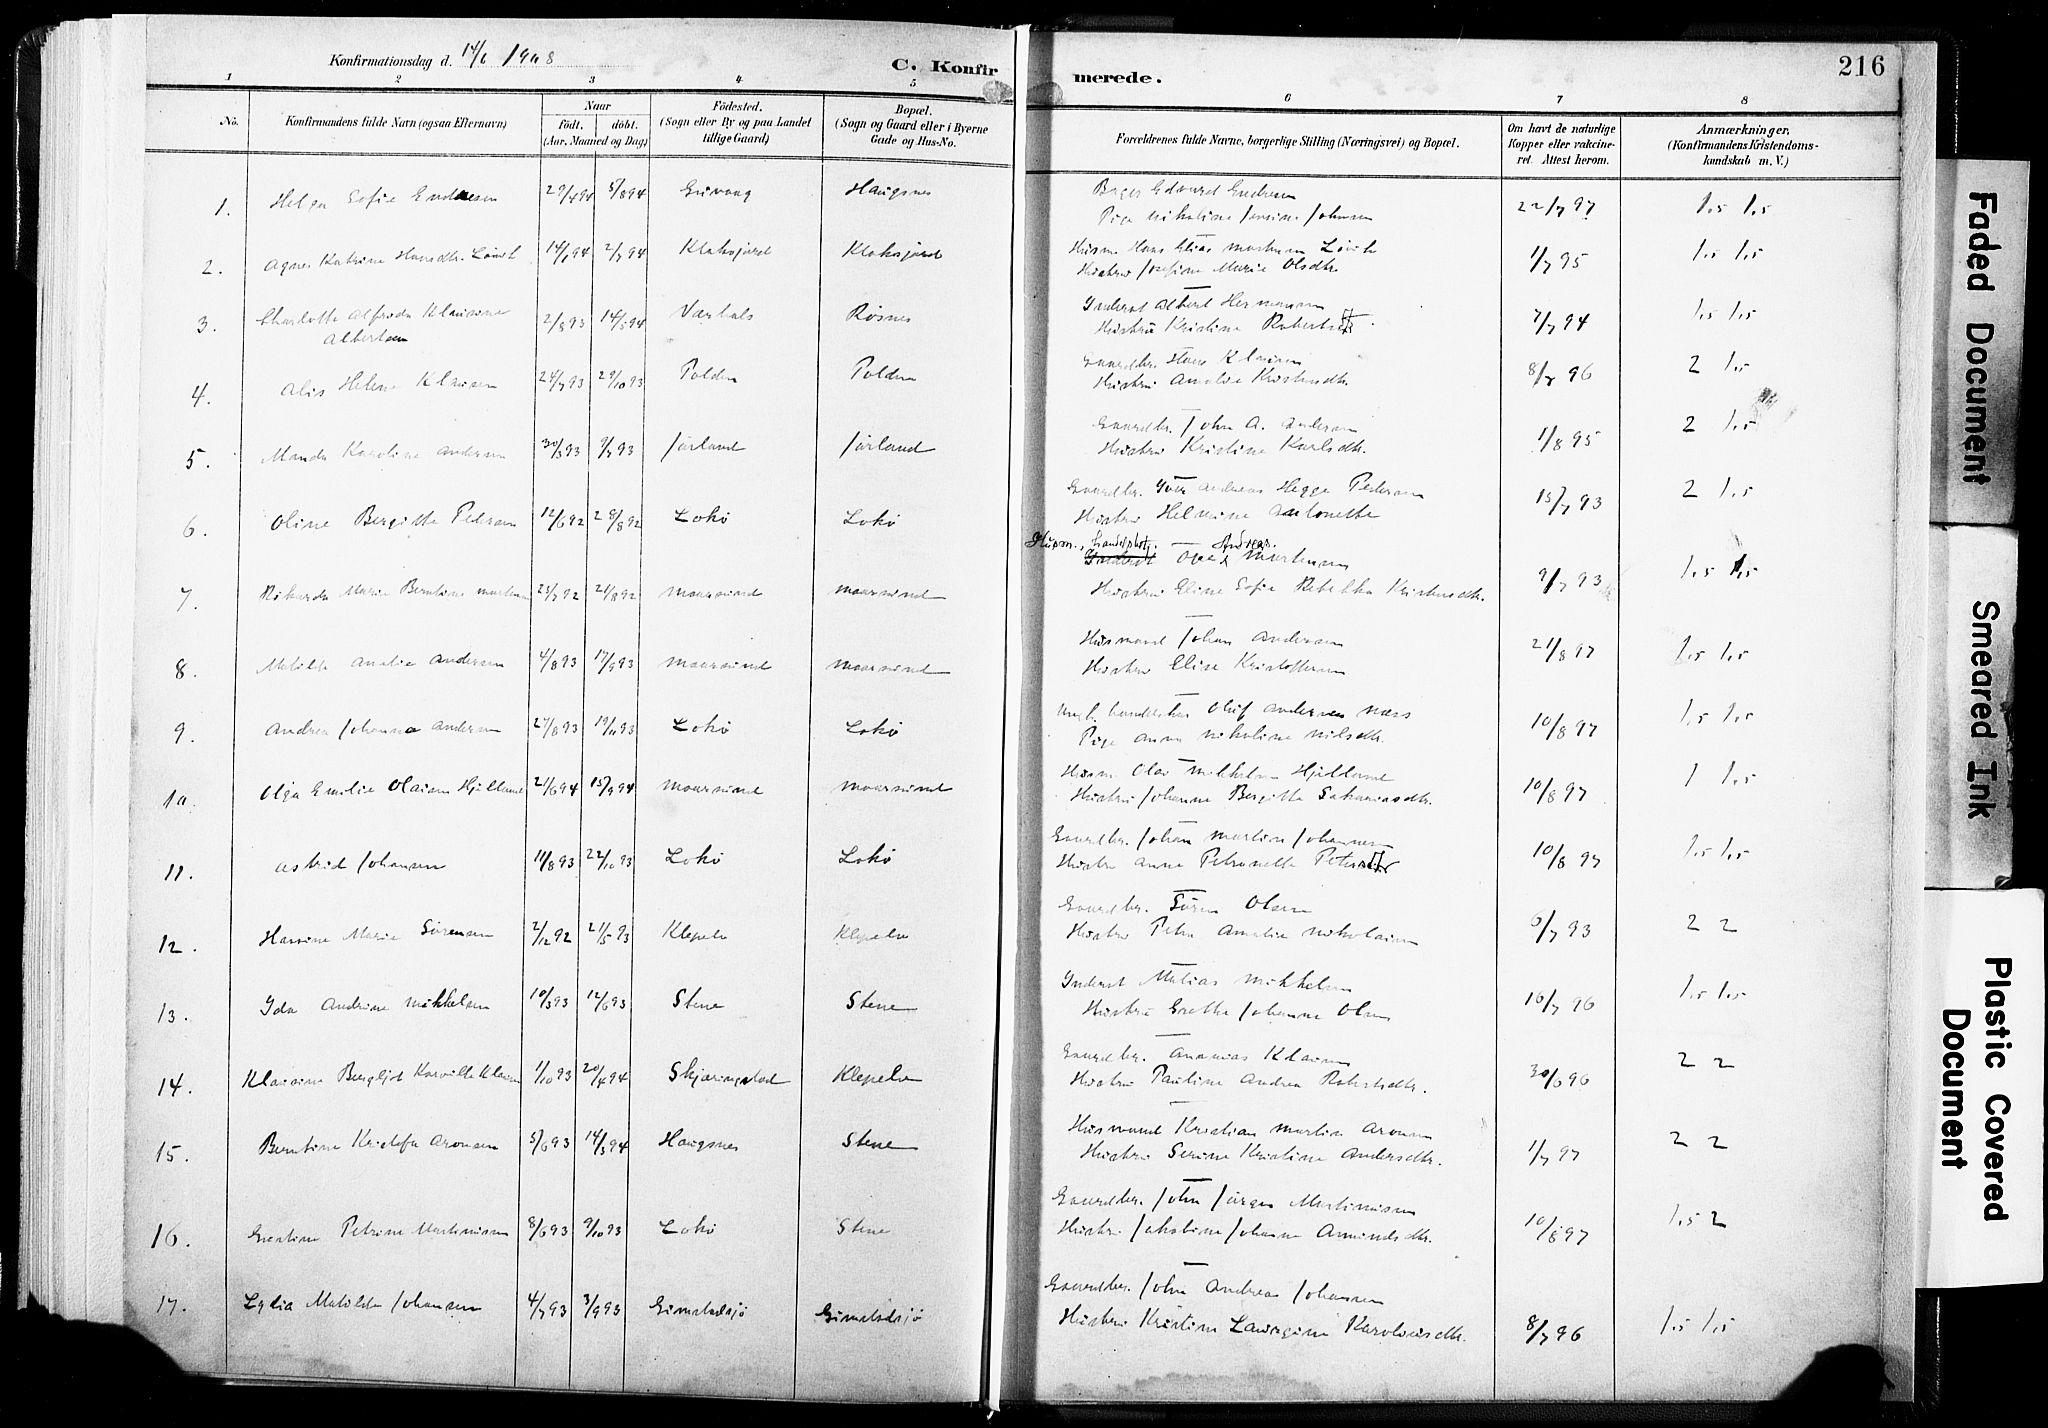 Konfirmationsdag d. 14/6 1908
C. Konfirmerede.
216
1 2 3 4 5 6 7 8
No. Konfirmandens fulde Navn (ogsaa Efternavn) Naar født. døbt. (Aar, Maaned og Dag) Fødested. (Sogn eller By og paa Landet tillige Gaard) Bopæl. (Sogn og Gaard eller i Byerne Gade og Hus-No. Forældrenes fulde Navne, borgerlige Stilling (Næringsvei) og Bopæl. Om havt de naturlige Kopper eller vakcineret. Attest herom. Anmærkninger, (Konfirmandens Kristendomskundskab m. V.)
1. Helga Sofie Endresen 29/4 94 5/8 94 Haugsnes
Edvard Endresen
Pige Nikoline Jensine Johansen 22/7 97 1,5 1,5
2. Agnes Katrine Hansdtr. Løvik 14/1 94 2/7 94 Klaksjord Klaksjord
Husm. Hans Elias Martinsen Løvik
Hustru Josefine Marie Olsdtr. 1/7 95 1,5 1,5
3. Charlotte Alfrida Klausine Albertsen 2/8 93 14/5 94 Røsnes
Inderst Albert Hermansen
Hustru Kristine 7/7 94 1,5 1,5
4. Alis Helene Klausen 24/7 93 29/10 93 Polden Polden
Gaardbr. Hans Klausen
Hustru Amalie Kristensdtr. 8/7 96 2 1,5
5. Manda Karoline Andersen 30/3 93 9/7 93 Jørland Jørland
Gaardbr. John A. Andersen
Hustru Kristine Karlsdtr. 1/8 95 2 1,5
6. Oline Bergitte Pedersen 12/6 92 28/8 92 Lokø Lokø
Gaardbr. Iver Andreas Hegge Pedersen
Hustru Helmine Antonette 15/7 93 2 1,5
7. Rikarda Marie Berntine Martinsen 23/7 92 21/8 92 Maursund Maursund
Husm., Andreas Martinsen
Hustru Eline Sofie Rebekka Kristensdtr. 9/7 93 1,5 1,5
8. Matilde Amalie Andersen 4/8 93 17/9 93 Maursund Maursund
Husmand Johan Andersen
Hustru Elise Kristoffersen 21/8 97 1,5 1,5
9. Andrea Johanna Andersen 27/8 93 19/11 93 Lokø Lokø
Oluf Andersen Næss
Pige Anna Nikoline Nilsdtr. 10/8 97 1,5 1,5
10. Olga Emilie Olaisen Hjelland 21/6 94 15/9 94 Maursund Maursund
Husm. Olai Mikkelsen Hjelland
Hustru Johanne Bergitte Sakariasdtr. 10/8 97 1 1,5
11. Astrid Johansen 11/8 93 22/10 93 Lokø Lokø
Gaardbr. Johan Martin Johannesen
Hustru Anna Petronelle 10/8 97 1,5 1,5
12. Hansine Marie Sørensen 2/12 92 21/5 93 Klepelv Klepelv
Gaardbr. Søren Olsen
Hustru Petra Amalie Nikolaisen 6/7 93 2 2
13. Ida Andrine Mikkelsen 10/3 93 12/6 93 Stene Stene
Inderst Matias Mikkelsen
Hustru Grethe Johanne Olsen 16/7 96 1,5 1,5
14. Klausine Bergljot Klausen 1/10 93 20/4 94 Skjæringstad Klepelv
Gaardbr. Ananias Klausen
Hustru Pauline Andrea Robertsdtr. 30/6 96 2 2
15. Berntine Kristofa Aronsen 5/6 93 14/3 94 Haugsnes Stene
Husmand Kristian Martin Aronsen
Hustru Serine Kristine Andersdtr. 1/7 97 2 2
16. Petrine Martinussen 8/6 93 9/10 93 Lokø Stene
Gaardbr. John Jørgen Martinussen
Hustru Jakobine Johanna Amundsdtr. 10/8 97 1,5 2
17. Lydia Matilde Johansen 4/7 93 3/9 93 Gimstadsjø Gimstadsjø
Gaardbr. John Andreas Johansen
Hustru Kristine Laurgine Karoliusdtr. 8/7 96 1,5 1,5
Faded Document
Smeared Ink
Plastic Covered Document